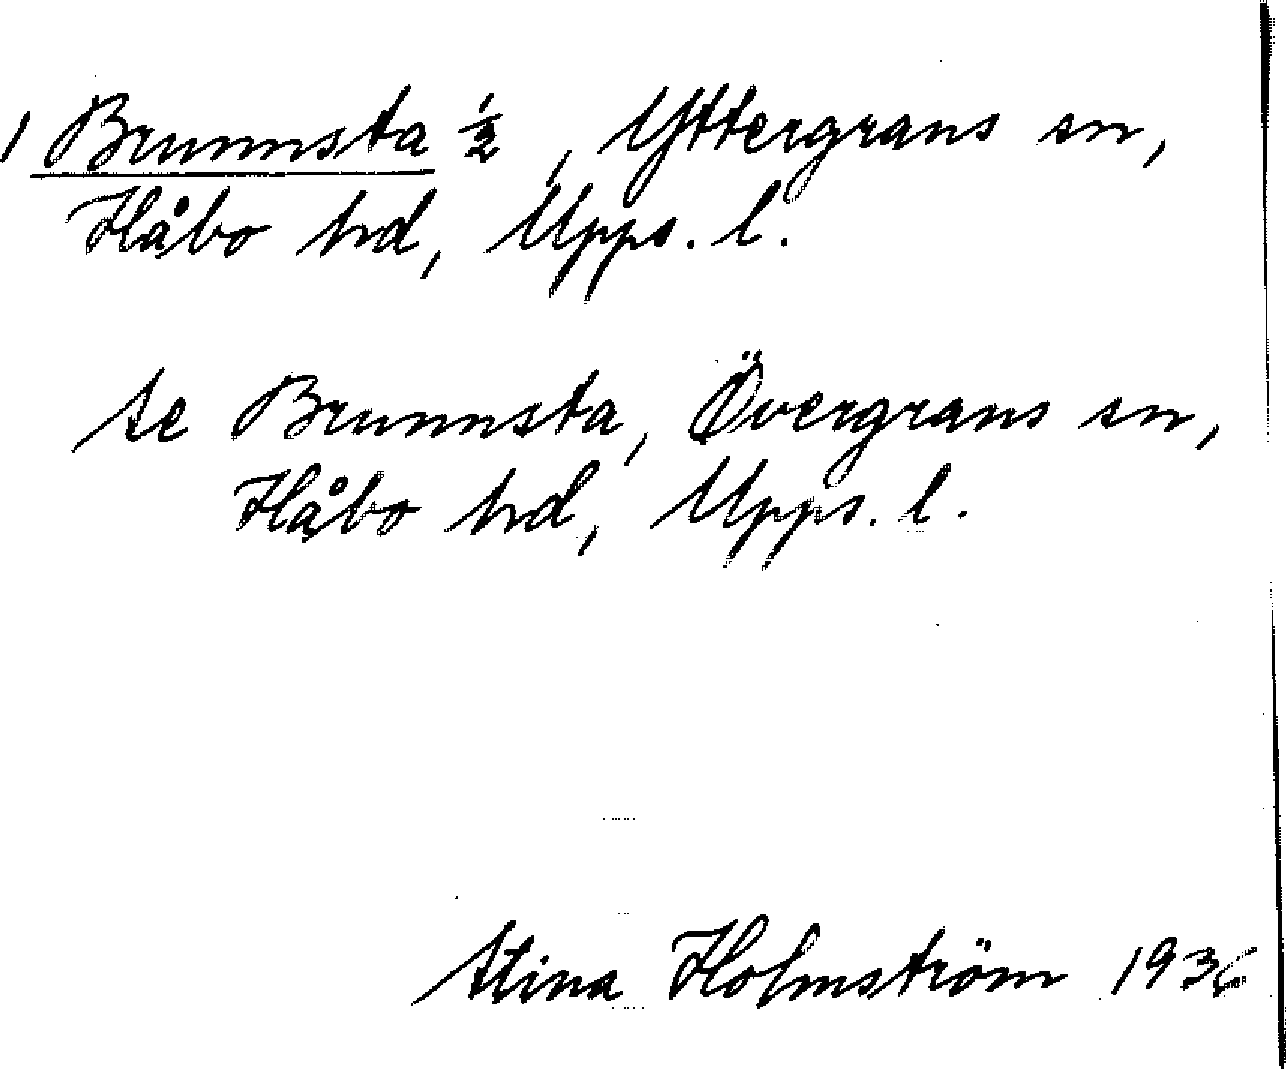 1 Brunnsta ½, Yttergrans sn,
Håbo hd, Upps. l.
Se Brunnsta, Övergrans sn,
Håbo hd, Upps. l.
Stina Holmström 1936